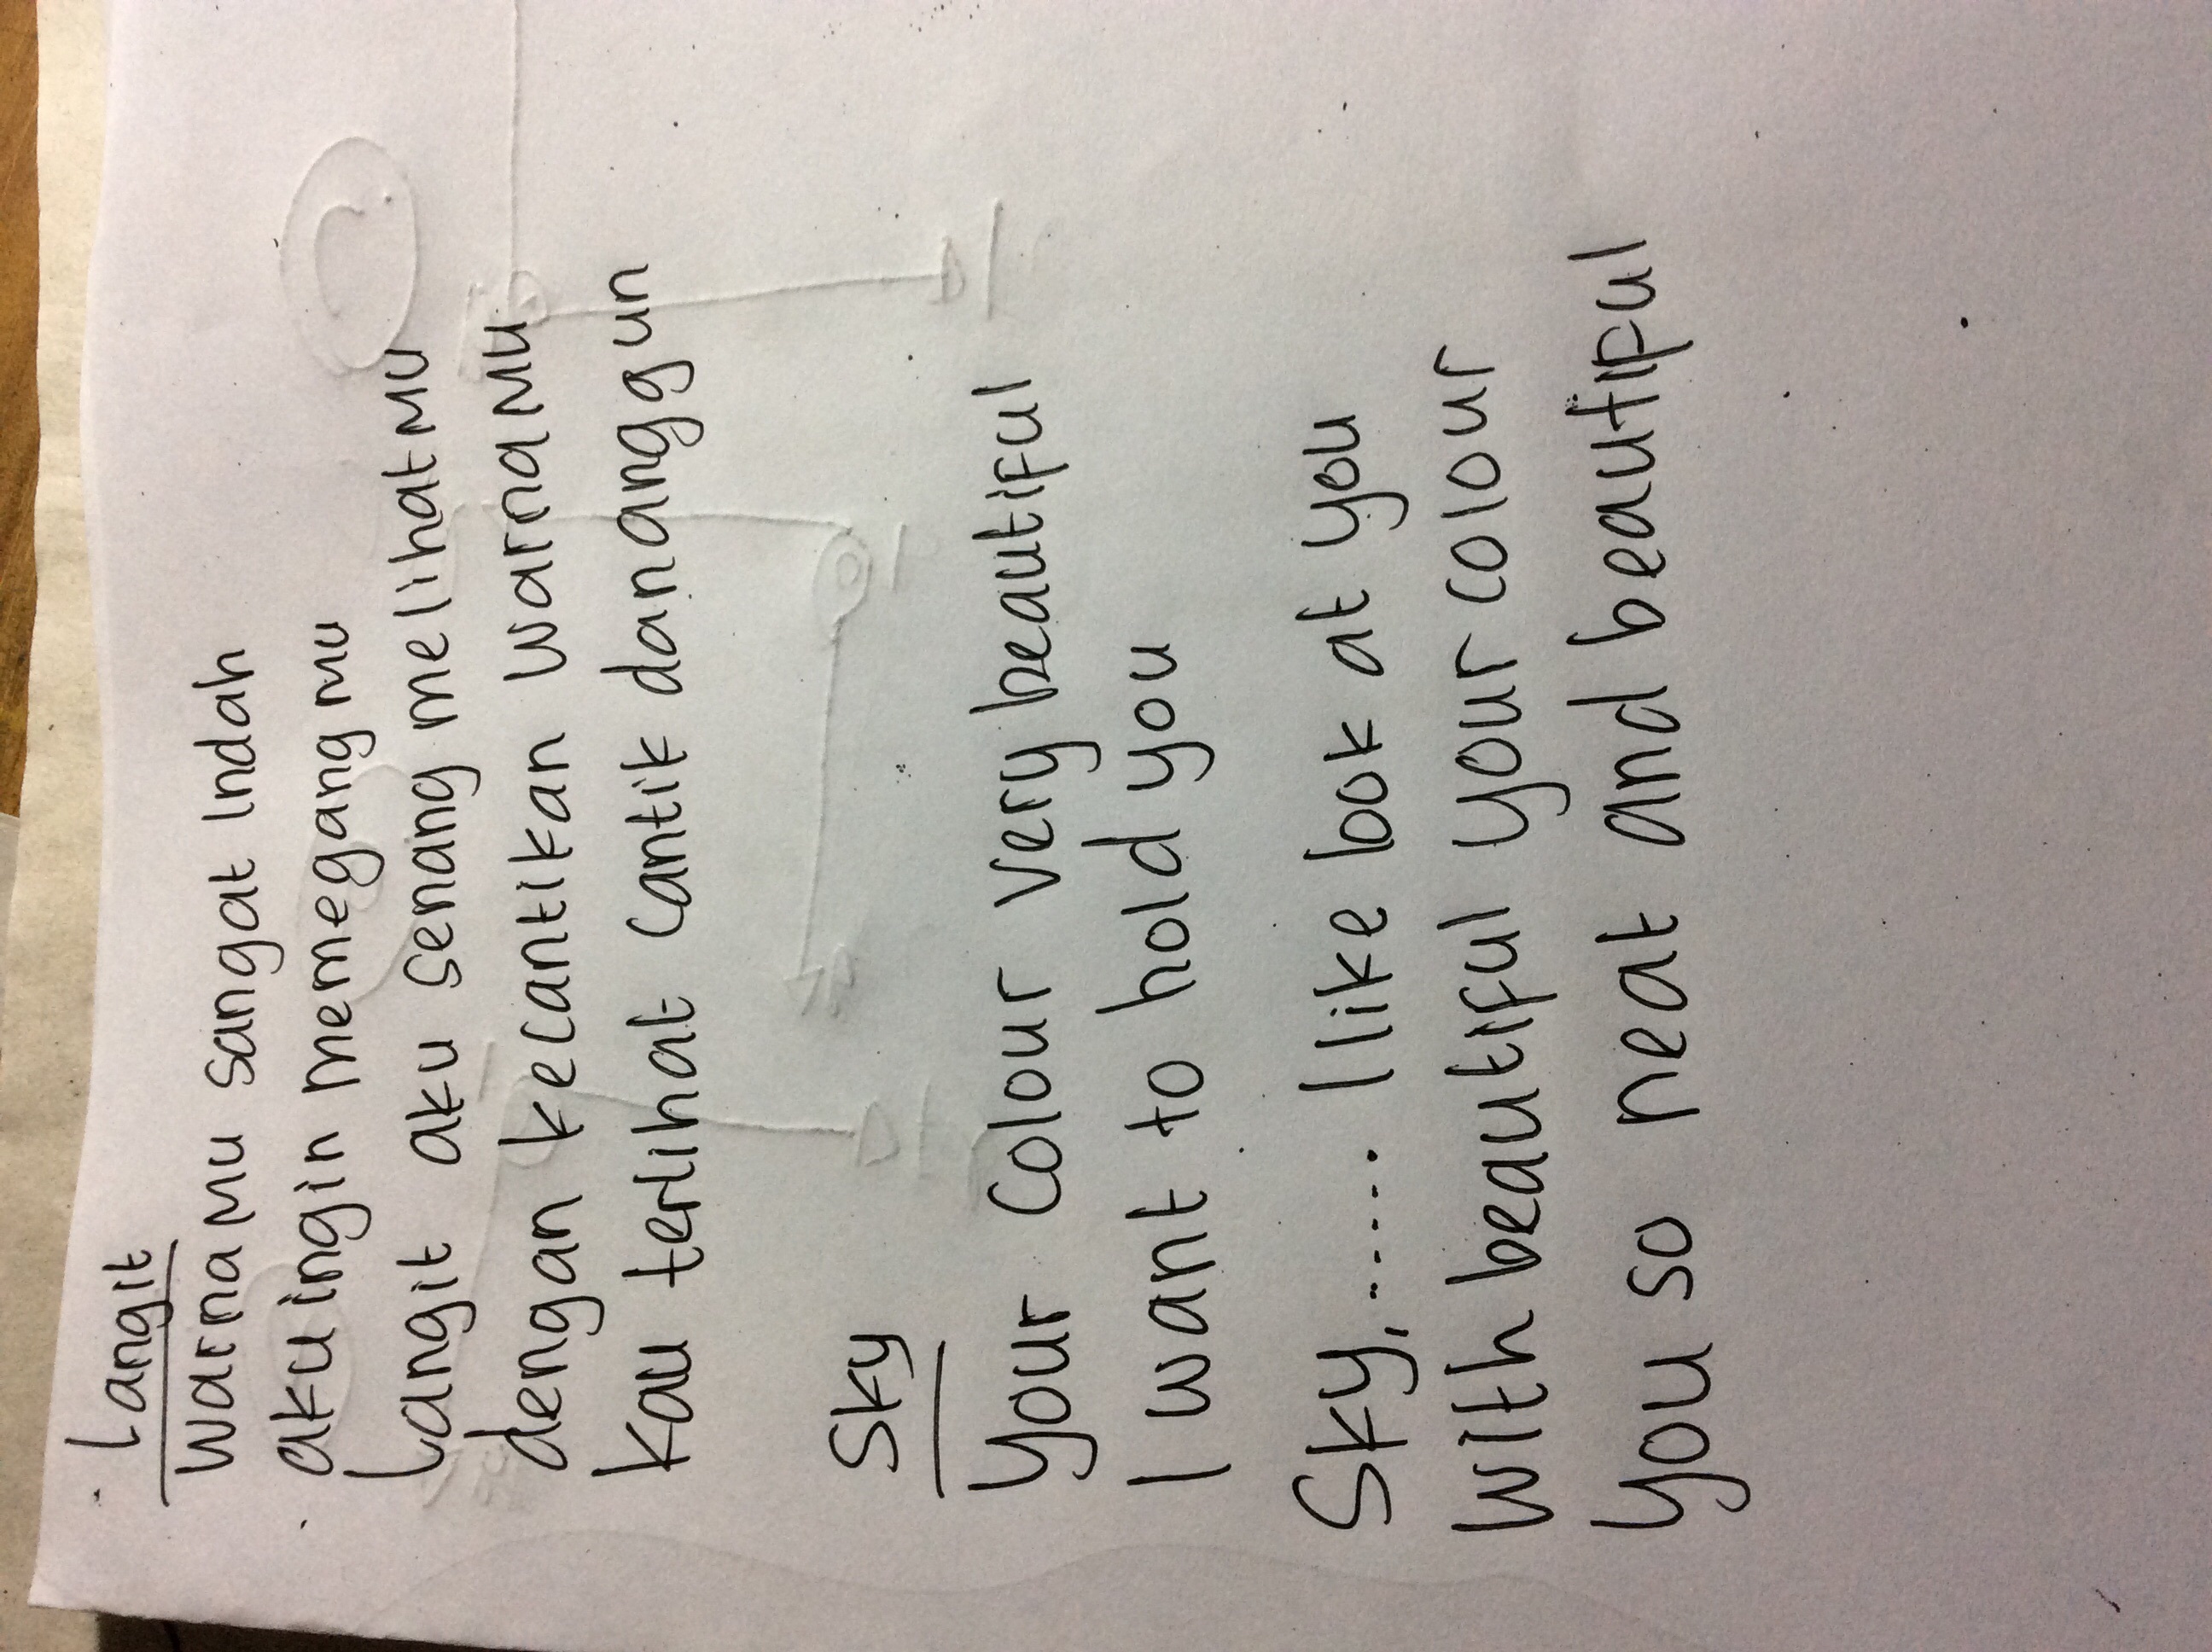 Langit
Warnamu sangat Indah
aku ingin memegang mu
Langit aku senang melihatmu
dengan kecantikan warnamu
kau terlihat cantik dan anggun
Sky
Your Colour very beautiful
I want to hold you
Sky,...... I like look at you
With beautiful your colour
You so neat and beautiful